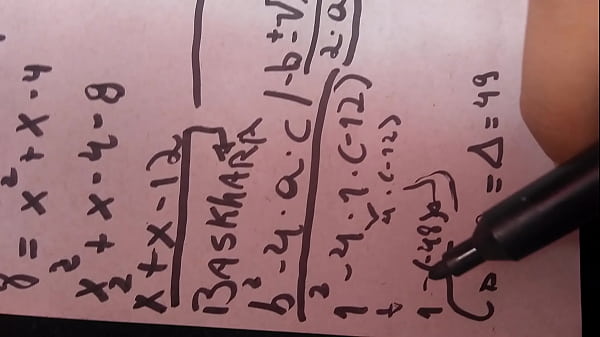 8 = x² + x - 4
x² + x - 4 - 8
x² + x - 12
BASKHARA
b² - 4 · a · c / -b ± √
2 · a
1² - 4 · 1 · (-12)
4 · (-12)
1 - (-48)
= Δ = 49